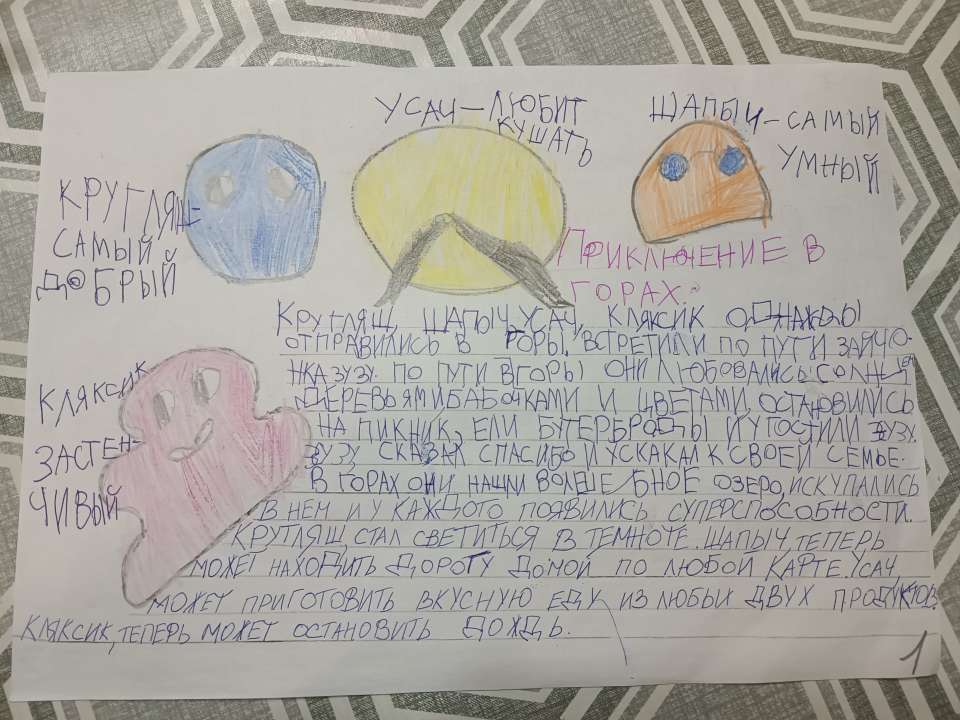 УСАЧ-ЛЮБИТ
КУШАТЬ
ШАПЫЧ-САМЫЙ
УМНЫЙ
КРУГЛЯШ-
САМЫЙ
ДОБРЫЙ
ПРИКЛЮЧЕНИЕ В
ГОРАХ.
КРУГЛЯШ, ШАПЫЧ, УСАЧ, КЛЯКСИК ОДНАЖДЫ
ОТПРАВИЛИСЬ В ГОРЫ. ВСТРЕТИЛИ ПО ПУТИ ЗАЙЧО-
НКА ЗУЗУ. ПО ПУТИ В ГОРЫ ОНИ ЛЮБОВАЛИСЬ СОЛНЦЕМ
ДЕРЕВЬЯМИ БАБОЧКАМИ И ЦВЕТАМИ. ОСТАНОВИЛИСЬ
НА ПИКНИК, ЕЛИ БУТЕРБРОДЫ И УГОСТИЛИ ЗУЗУ.
ЗУЗУ СКАЗАЛ СПАСИБО И УСКАКАЛ К СВОЕЙ СЕМЬЕ.
В ГОРАХ ОНИ НАШЛИ ВОЛШЕБНОЕ ОЗЕРО, ИСКУПАЛИСЬ
В НЕМ И У КАЖДОГО ПОЯВИЛИСЬ СУПЕРСПОСОБНОСТИ.
КРУГЛЯШ СТАЛ СВЕТИТЬСЯ В ТЕМНОТЕ. ШАПЫЧ, ТЕПЕРЬ
МОЖЕТ НАХОДИТЬ ДОРОГУ ДОМОЙ ПО ЛЮБОЙ КАРТЕ. УСАЧ
МОЖЕТ ПРИГОТОВИТЬ ВКУСНУЮ ЕДУ ИЗ ЛЮБЫХ ДВУХ ПРОДУКТОВ.
КЛЯКСИК, ТЕПЕРЬ МОЖЕТ ОСТАНОВИТЬ ДОЖДЬ.
КЛЯКСИК
ЗАСТЕН-
ЧИВЫЙ
1